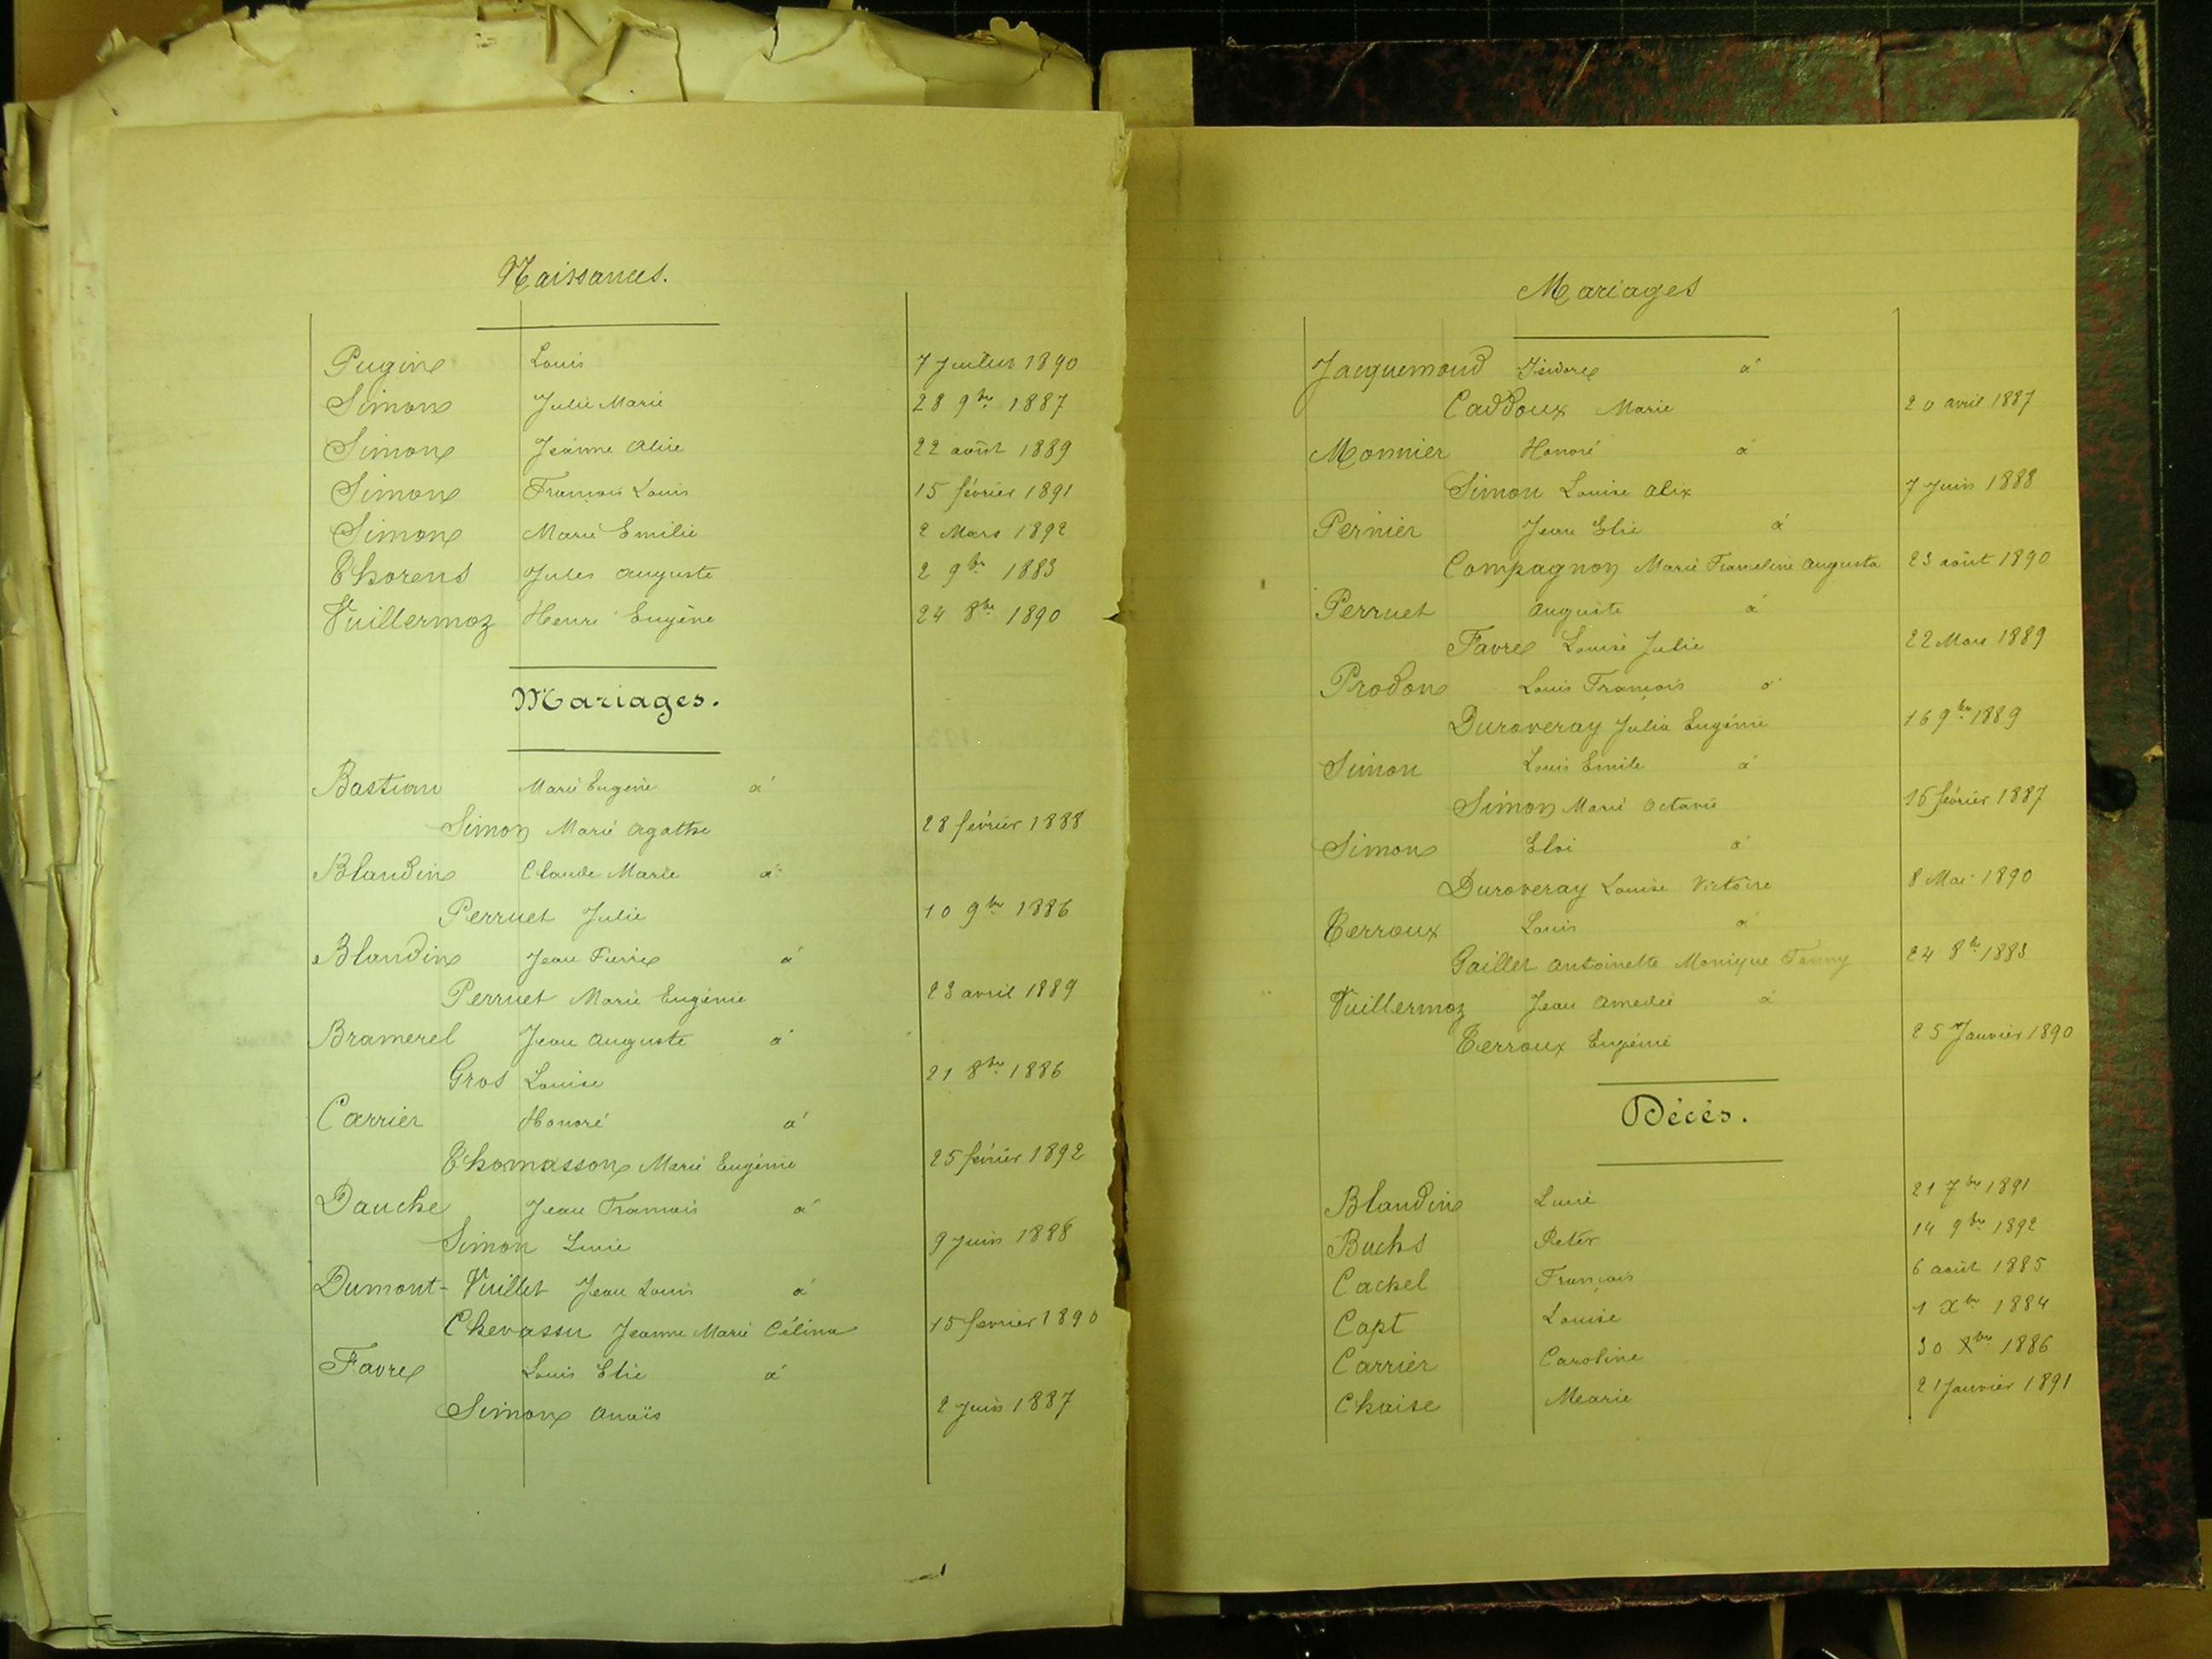 Naissances.
Pugin Louis 7 Juillet 1890
Simon Julie Marie 28 9bre 1887
Simon Jeanne Alice 22 août 1889
Simon François Louis 15 février 1891
Simon Marie Emilie 2 Mars 1892
Thorens Jules Auguste 2 9bre 1883
Vuillermoz Henri Eugène 24 8bre 1890
Mariages.
Bastian Marie Eugène à
Simon Marie Agathe 28 février 1888
Blandin Claude Marie à
Perruet Julie 10 9bre 1886
Blandin Jean Pierre à
Perruet Marie Eugénie 23 avril 1889
Bramerel Jean Auguste à
Gros Louise 21 8bre 1886
Carrier Honoré à
Thomasson Marie Eugénie 25 février 1892
Dauche Jean François à
Simon Lucie 9 Juin 1888
Dumont-Vuillet Jean Louis à
Chevassu Jeanne Marie Célina 15 février 1890
Favre Louis Elie à
Simon Anaïs 2 Juin 1887
Mariages
Jacquemoud Isidore à
Caddoux Marie 20 avril 1887
Monnier Honoré à
Simon Louise Alix 7 Juin 1888
Pernier Jean Elie à
Compagnon Marie Franceline Augusta 23 août 1890
Perruet Auguste à
Favre Louise Julie 22 Mars 1889
Prodon Louis François à
Duroveray Julia Eugénie 16 9bre 1889
Simon Louis Emile à
Simon Marie Octavie 16 février 1887
Simon Eloi à
Duroveray Louise Victoire 8 Mai 1890
Terroux Louis à
Gaillet Antoinette Monique Fanny 24 8bre 1883
Vuillermoz Jean Amedée à
Terroux Eugénie 25 Janvier 1890
Décés.
Blandin Lucie 21 7bre 1891
Buchs Peter 14 9bre 1892
Cachel François 6 août 1885
Capt Louise 1 Xbre 1884
Carrier Caroline 30 Xbre 1886
Chaise Marie 21 Janvier 1891